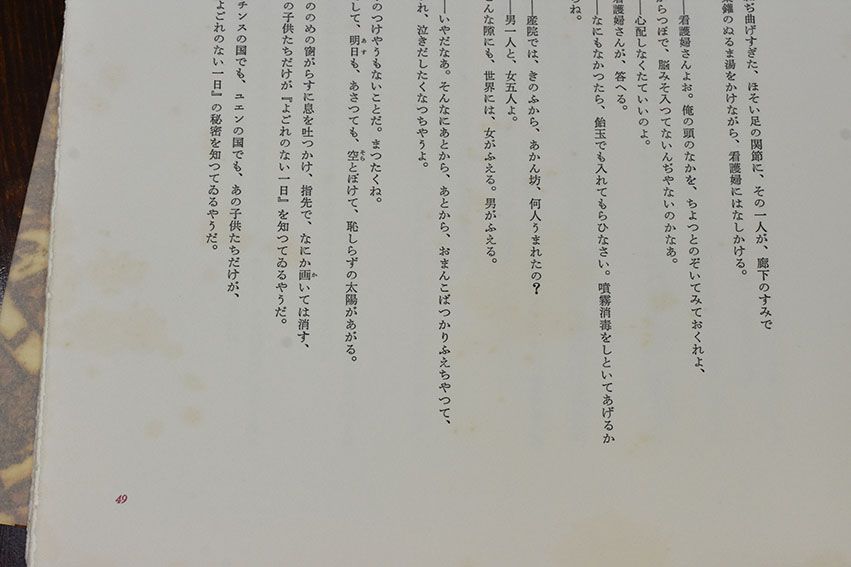 ぢ曲げすぎた、ほそい足の関節に、その一人が、廊下のすみで
のぬるま湯をかけながら、看護婦にはなしかける。
――看護婦さんよお。俺の頭のなかを、ちよつとのぞいてみておくれよ、
からつぽで、脳みそ入つてないんぢやないのかなあ。
――心配しなくたていいのよ。
看護婦さんが、答へる。
――なにもなかつたら、飴玉でも入れてもらひなさい。噴霧消毒をしといてあげるか
らね。
――産院では、きのふから、あかん坊、何人うまれたの?
――男一人と、女五人よ。
んな隙にも、世界には、女がふえる。男がふえる。
――いやだなあ。そんなにあとから、あとから、おまんこばつかりふえちやつて、
れ、泣きだしたくなつちやうよ。
のつけやうもないことだ。まつたくね。
して、明日も、あさつても、空とぼけて、恥しらずの太陽があがる。
ののめの窗がらすに息を吐つかけ、指先で、なにか画いては消す、
の子供たちだけが『よごれのない一日』を知つてゐるやうだ。
チンスの国でも、ユエンの国でも、あの子供たちだけが、
よごれのない一日』の秘密を知つてゐるやうだ。
49